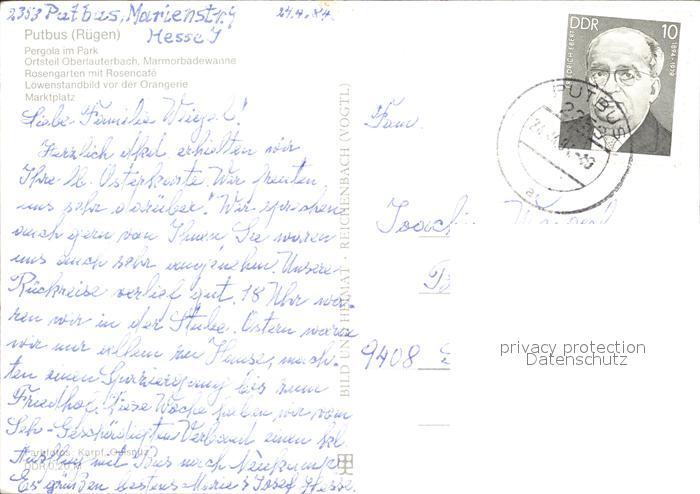 2353 Putbus, Marienstr. 4 24.4.84
Hesse J
Putbus (Rügen)
Pergola im Park
Ortsteil Oberlauterbach, Marmorbadewanne
Rosengarten mit Rosencafé
Löwenstandbild vor der Orangerie
Marktplatz
DDR 10
FRIEDRICH EBERT 1894-1979
PUTBUS
Liebe Familie Wiegel!
Herzlich dkd. erhielten wir
Ihre lb. Osterkarte. Wir freuten
uns sehr darüber! Wir sprechen
auch gern von Ihnen, Sie waren
uns auch sehr angenehm. Unsere
Rückreise verlief gut. 18 Uhr wa-
ren wir in der Stube. Ostern waren
wir nur allein zu Hause, mach-
ten einen Spaziergang bis zum
Friedhof. Diese Woche haben wir vom
Seh-Geschädigten Verband einen
Ausflug mit Bus nach
Es grüßen bestens Marie & Josef Hesse.
BILD UND HEIMAT · REICHENBACH (VOGTL)
Fam.
Joachi
9408
privacy protection
Datenschutz
DDR 0,20 M